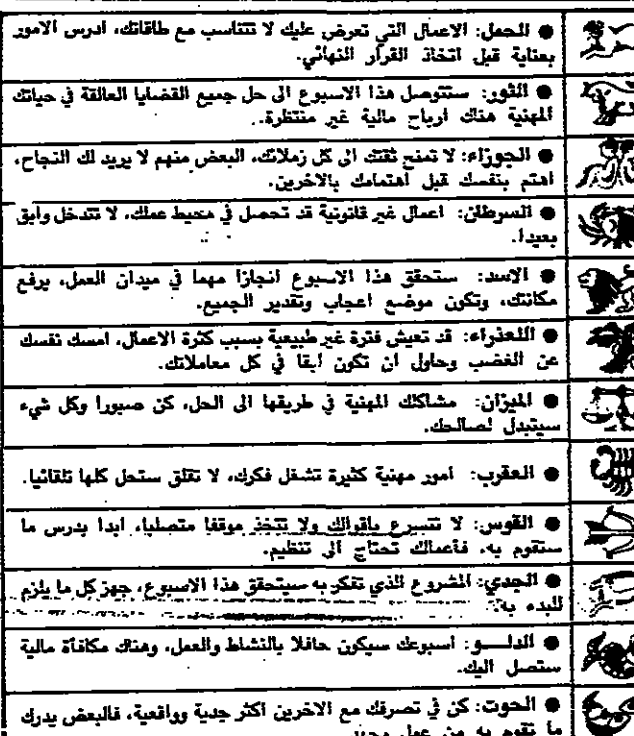 ● الحمل: الاعمال التي تعرض عليك لا تتناسب مع طاقاتك، ادرس الامور
بعناية قبل اتخاذ القرار النهائي.
● الثور: ستتوصل هذا الاسبوع الى حل جميع القضايا العالقة في حياتك
المهنية هناك ارباح مالية غير منتظرة.
● الجوزاء: لا تمنح ثقتك الى كل زملائك، البعض منهم لا يريد لك النجاح،
اهتم بنفسك قبل اهتمامك بالاخرين.
● السرطان: اعمال غير قانونية قد تحصل في محيط عملك، لا تتدخل وابق
بعيدا.
● الاسد: ستحقق هذا الاسبوع انجازا مهما في ميدان العمل، يرفع
مكانتك، وتكون موضع اعجاب وتقدير الجميع.
● اللعذراء: قد تعيش فترة غير طبيعية بسبب كثرة الاعمال، امسك نفسك
عن الغضب وحاول ان تكون لبقا في كل معاملاتك.
● الميزان: مشاكلك المهنية في طريقها الى الحل، كن صبورا وكل شيء
سيتبدل لصالحك.
● العقرب: امور مهنية كثيرة تشغل فكرك، لا تقلق ستحل كلها تلقائيا.
● القوس: لا تتسرع باقوالك ولا تتخذ موقفا متصلبا، ابدا بدرس ما
ستقوم به، فأعمالك تحتاج الى تنظيم.
● الجدي: المشروع الذي تفكر به سيتحقق هذا الاسبوع، جهز كل ما يلزم
للبدء به.
● الدلـــو: اسبوعك سيكون حافلا بالنشاط والعمل، وهناك مكافأة مالية
ستصل اليك.
● الحوت: كن في تصرفك مع الاخرين اكثر جدية وواقعية، فالبعض يدرك
ما تقوم به من عمل